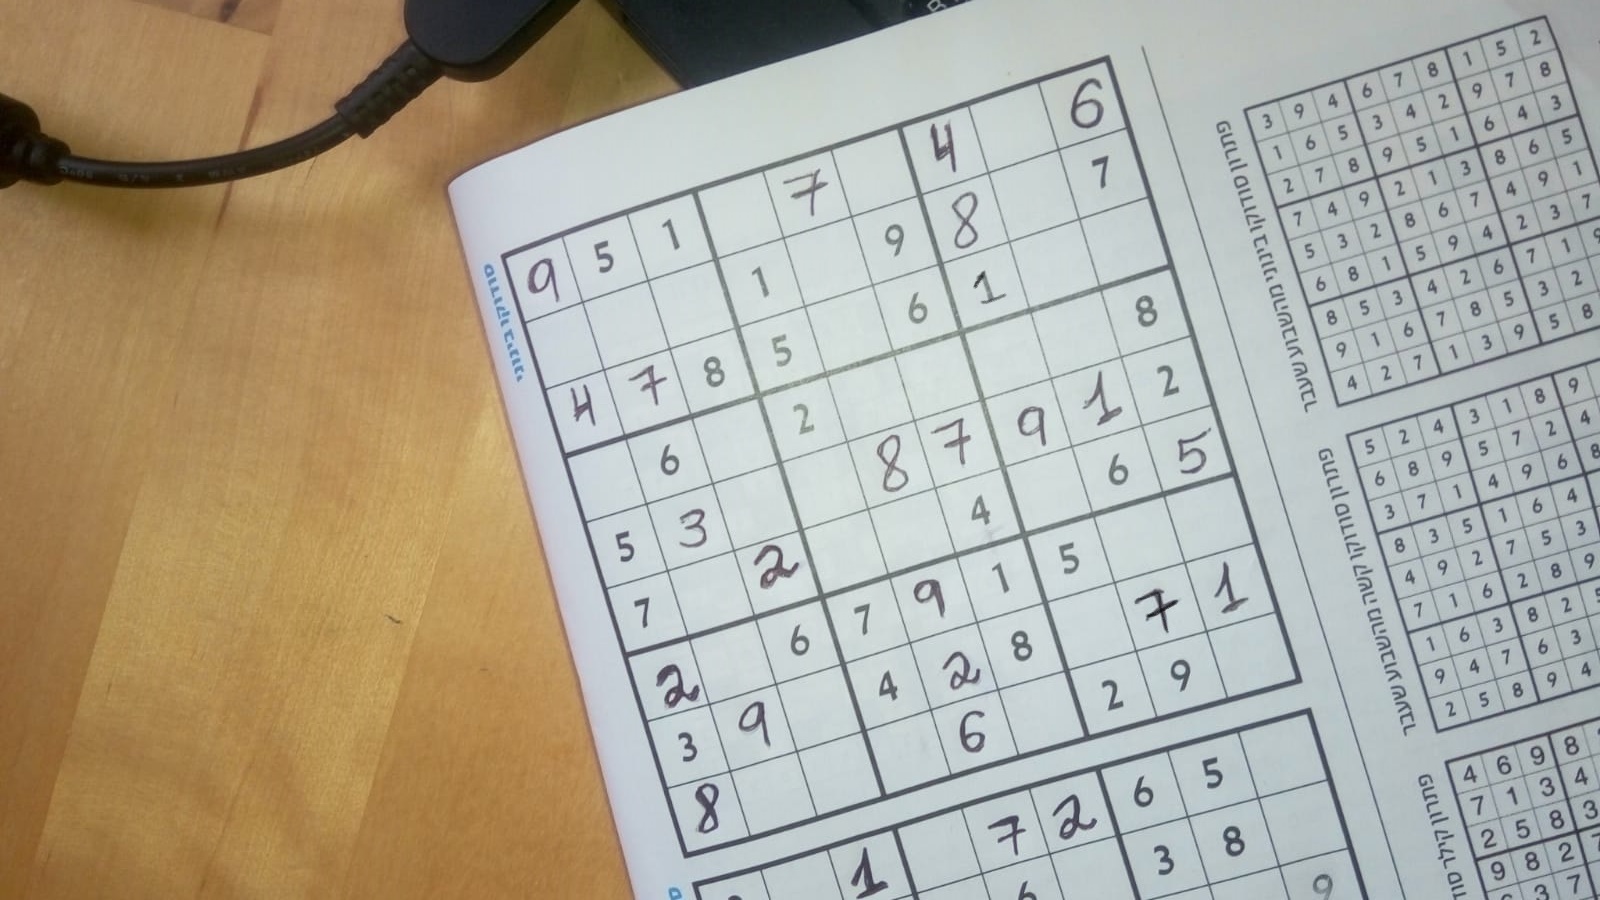 9 5 1 7 4 6
1 9 8 7
4 7 8 5 6 1
6 2 8
5 3 8 7 9 1 2
7 2 4 6 5
2 6 7 9 1 5
3 9 4 2 8 7 1
8 6 2 9
1 7 2 6 5
6 3 8
9
3 9 4 6 7 8 1 5 2
1 6 5 3 4 2 9 7 8
2 7 8 9 5 1 6 4 3
7 4 9 2 1 3 8 6 5
5 3 2 8 6 7 4 9 1
6 8 1 5 9 4 2 3 7
8 5 3 4 2 6 7 1 9
9 1 6 7 8 5 3 2
4 2 7 1 3 9 5 8
5 2 4 3 1 8 9
6 8 9 5 7 2 4
3 7 1 4 9 6 8
8 3 5 1 6 4
4 9 2 7 5 3
7 1 6 2 8 9
1 6 3 8 2 5
9 4 7 6 3
2 5 8 9 4
4 6 9 8
7 1 3 4
2 5 8 3
9 8 2 7
3 7